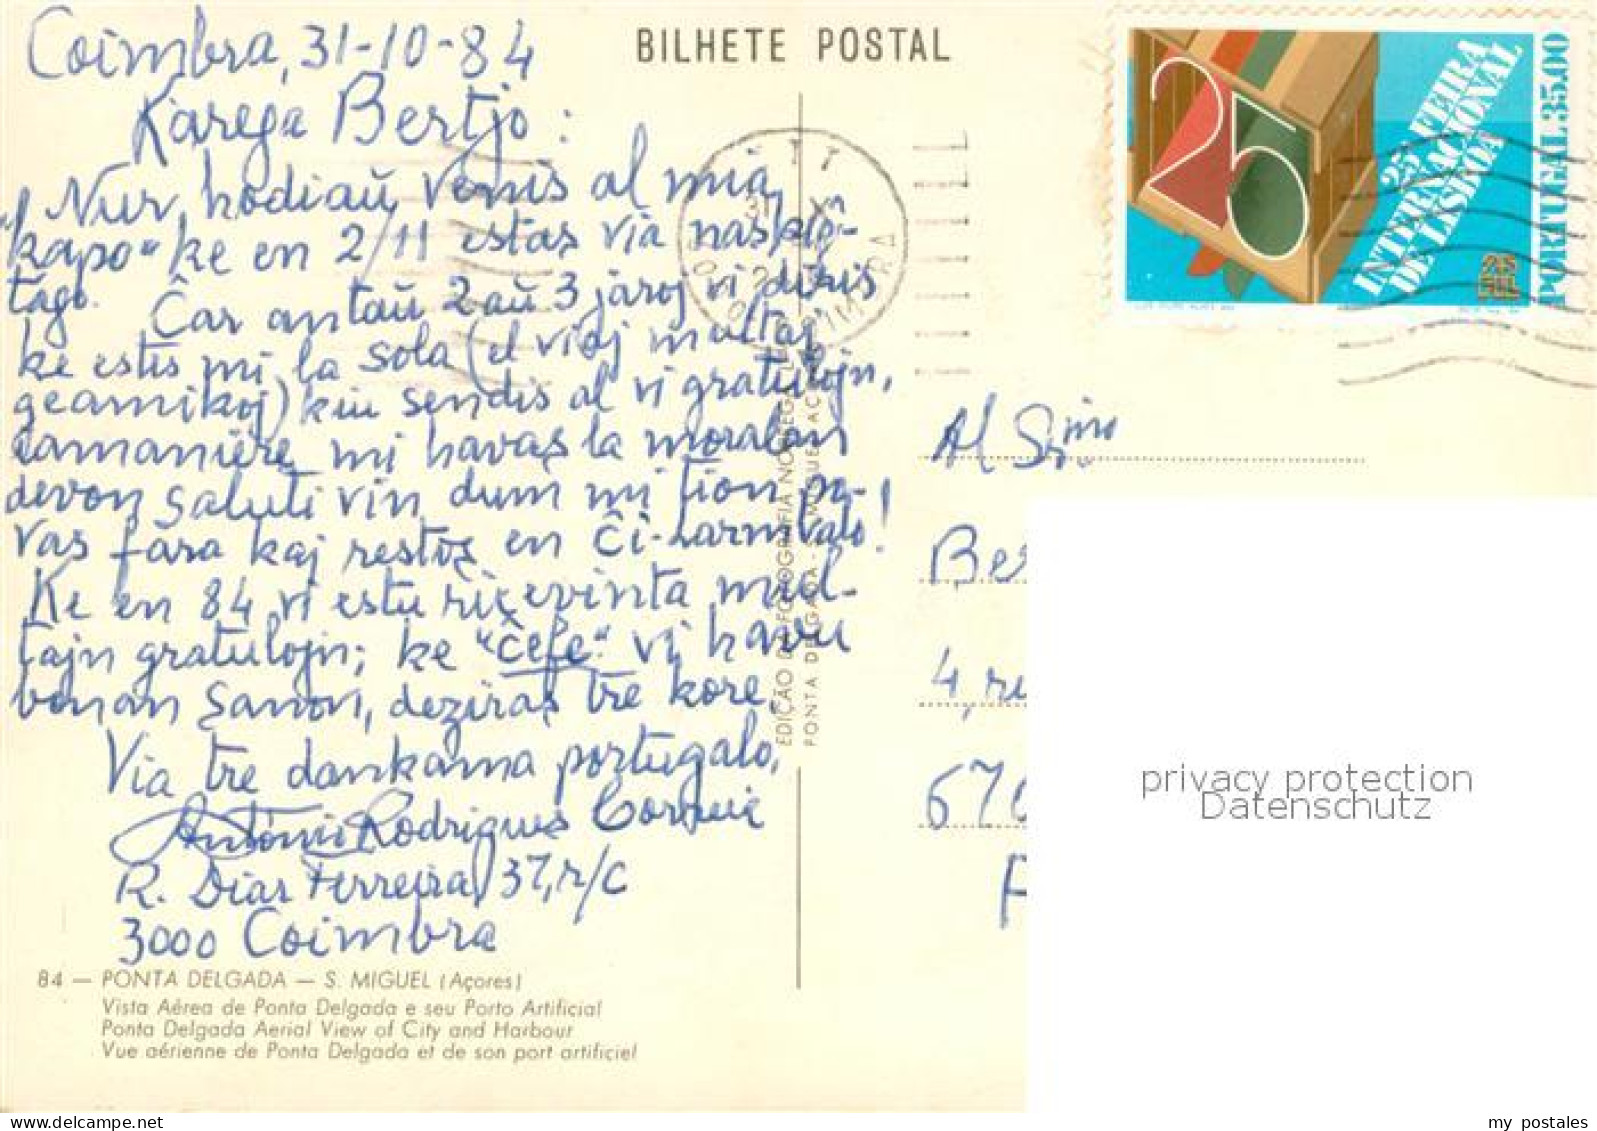 Coimbra, 31-10-84
Karega Bertjo:
Nur, hodiaŭ, venis al mia
"kapo" ke en 2/11 estas via naskiĝ-
tago. Ĉar antaŭ 2 aŭ 3 jaroj vi diris
ke estis mi la sola (el viaj multaj
geamikoj) kiu sendis al vi gratulojn,
tamaniere, mi havas la moralan
devon saluti vin, dum mi tion po-
vas fara kaj restos en ĉi-larmvalo!
Ke en 84 vi estu ricevinta mul-
tajn gratulojn; ke "ĉefe" vi havu
bonan sanon, deziras tre kore,
Via tre dankama portugalo,
António Rodrigues Correia
R. Dias Ferreira, 37, r/c
3000 Coimbra
84 — PONTA DELGADA — S. MIGUEL (Açores)
Vista Aérea de Ponta Delgada e seu Porto Artificial
Ponta Delgada Aerial View of City and Harbour
Vue aérienne de Ponta Delgada et de son port artificiel
BILHETE POSTAL
EDIÇÃO DA FOTOGRAFIA NÓBREGA
PONTA DELGADA - S. MIGUEL - AÇORES
25
25 FEIRA
INTERNACIONAL
DE LISBOA
25
FIL
PORTUGAL 35.00
Al Sinº
Be
4, ru
670
F
privacy protection
Datenschutz
my_postales
delcampe.net